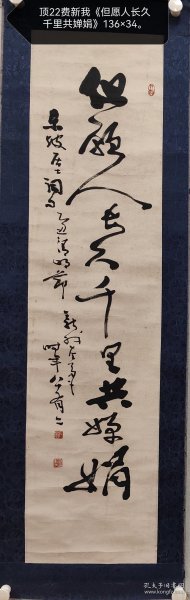 顶22费新我《但愿人长久
千里共婵娟》136×34。
但願人長久千里共嬋娟
東坡居士詞句 乙丑清明節
新我左筆 時年八十有二
孔夫子旧书网